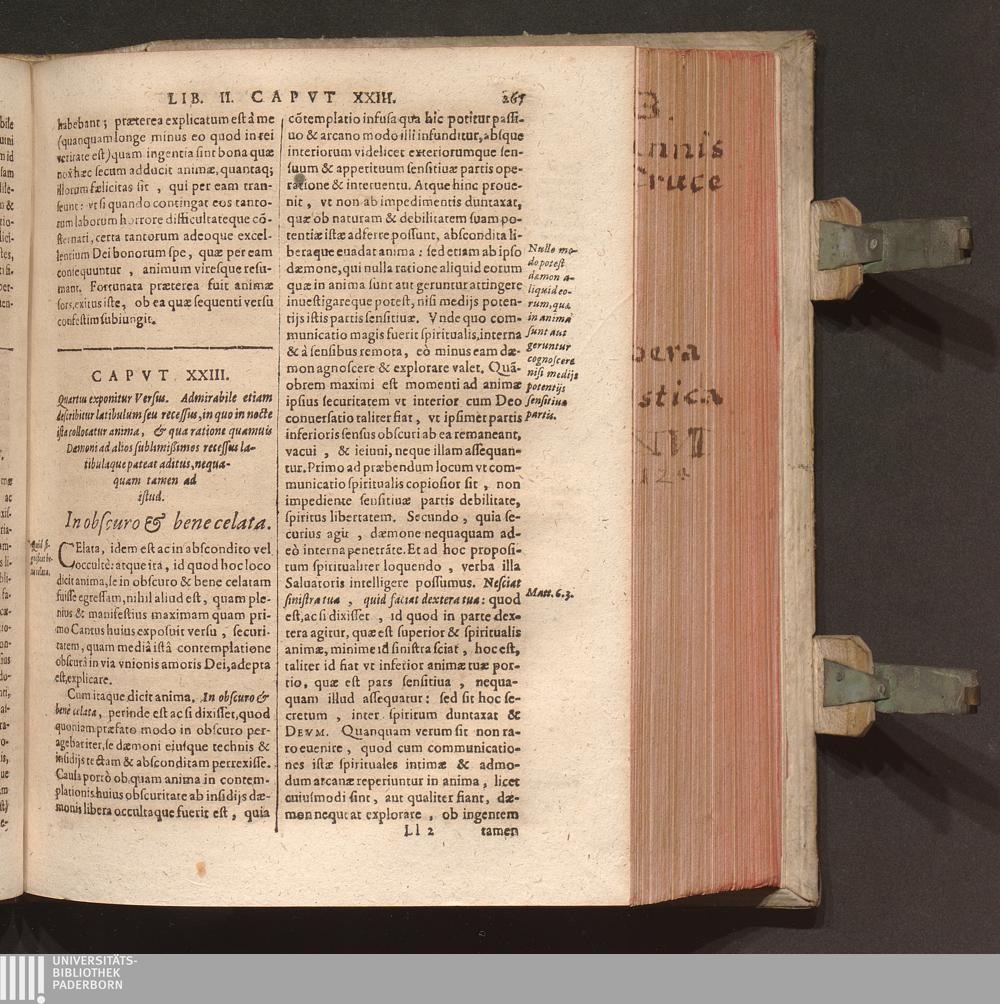 LIB. II. CAPVT XXIII. 265
habebant; præterea explicatum est à me
(quanquam longe minus eo quod in rei
veritate est) quam ingentia sint bona quæ
nox hæc secum adducit animæ, quantaq;
illorum fælicitas sit, qui per eam tran-
seunt: vt si quando contingat eos tanto-
rum laborum horrore difficultateque cō-
sternati, certa tantorum adeoque excel-
lentium Dei bonorum spe, quæ per eam
consequuntur, animum viresque resu-
mant. Fortunata præterea fuit animæ
sors, exitus iste, ob ea quæ sequenti versu
confestim subiungit.
CAPVT XXIII.
Quartus exponitur Versus. Admirabile etiam
describitur latibulum seu recessus, in quo in nocte
ista collocatur anima, & qua ratione quamuis
Dæmoni ad alios sublimißimos recessus la-
tibulaque pateat aditus, nequa-
quam tamen ad
istud.
In obscuro & bene celata.
CElata, idem est ac in abscondito vel
occultè: atque ita, id quod hoc loco
dicit anima, se in obscuro & bene celatam
fuisse egressam, nihil aliud est, quam ple-
nius & manifestius maximam quam pri-
mo Cantus huius exposuit versu, securi-
tatem, quam mediâ istâ contemplatione
obscurâ in via vnionis amoris Dei, adepta
est, explicare.
Cum itaque dicit anima, In obscuro &
bene celata, perinde est ac si dixisset, quod
quoniam præfato modo in obscuro per-
agebat iter, se dæmoni eiusque technis &
insidijs tectam & absconditam perrexisse.
Causa porrò ob quam anima in contem-
plationis huius obscuritate ab insidijs dæ-
monis libera occultaque fuerit est, quia
cōtemplatio infusa qua hîc potitur passi-
uo & arcano modo illi infunditur, absque
interiorum videlicet exteriorumque sen-
suum & appetituum sensitiuæ partis ope-
ratione & interuentu. Atque hinc proue-
nit, vt non ab impedimentis duntaxat,
quæ ob naturam & debilitatem suam po-
tentiæ istæ adferre possunt, abscondita li-
beraque euadat anima: sed etiam ab ipso
dæmone, qui nulla ratione aliquid eorum
quæ in anima sunt aut geruntur attingere
inuestigareque potest, nisi medijs poten-
tijs istis partis sensitiuæ. Vnde quo com-
municatio magis fuerit spiritualis, interna
& à sensibus remota, eò minus eam dæ-
mon agnoscere & explorare valet. Quā-
obrem maximi est momenti ad animæ
ipsius securitatem vt interior cum Deo
conuersatio taliter fiat, vt ipsimet partis
inferioris sensus obscuri ab ea remaneant,
vacui, & ieiuni, neque illam assequan-
tur. Primo ad præbendum locum vt com-
municatio spiritualis copiosior sit, non
impediente sensitiuæ partis debilitate,
spiritus libertatem. Secundo, quia se-
curius agit, dæmone nequaquam ad-
eò interna penetrâte. Et ad hoc proposi-
tum spiritualiter loquendo, verba illa
Saluatoris intelligere possumus. Nesciat
sinistra tua, quid faciat dextera tua: quod
est, ac si dixisset, id quod in parte dex-
tera agitur, quæ est superior & spiritualis
animæ, minime id sinistra sciat, hoc est,
taliter id fiat vt inferior animæ tuæ por-
tio, quæ est pars sensitiua, nequa-
quam illud assequatur: sed sit hoc se-
cretum, inter spiritum duntaxat &
DEVM. Quanquam verum sit non ra-
ro euenire, quod cum communicatio-
nes istæ spirituales intimæ & admo-
dum arcanæ reperiuntur in anima, licet
cuiusmodi sint, aut qualiter fiant, dæ-
mon nequeat explorare, ob ingentem
Ll 2 tamen
Quid si-
gnificat be-
ne celata.
Nullo mo-
do potest
dæmon a-
liquid eo-
rum, quæ
in anima
sunt aut
geruntur
cognoscere
nisi medijs
potentijs
sensitiuæ
partis.
Matt. 6. 3.
B.
annis
Cruce
pera
stica
UNIVERSITÄTS-
BIBLIOTHEK
PADERBORN